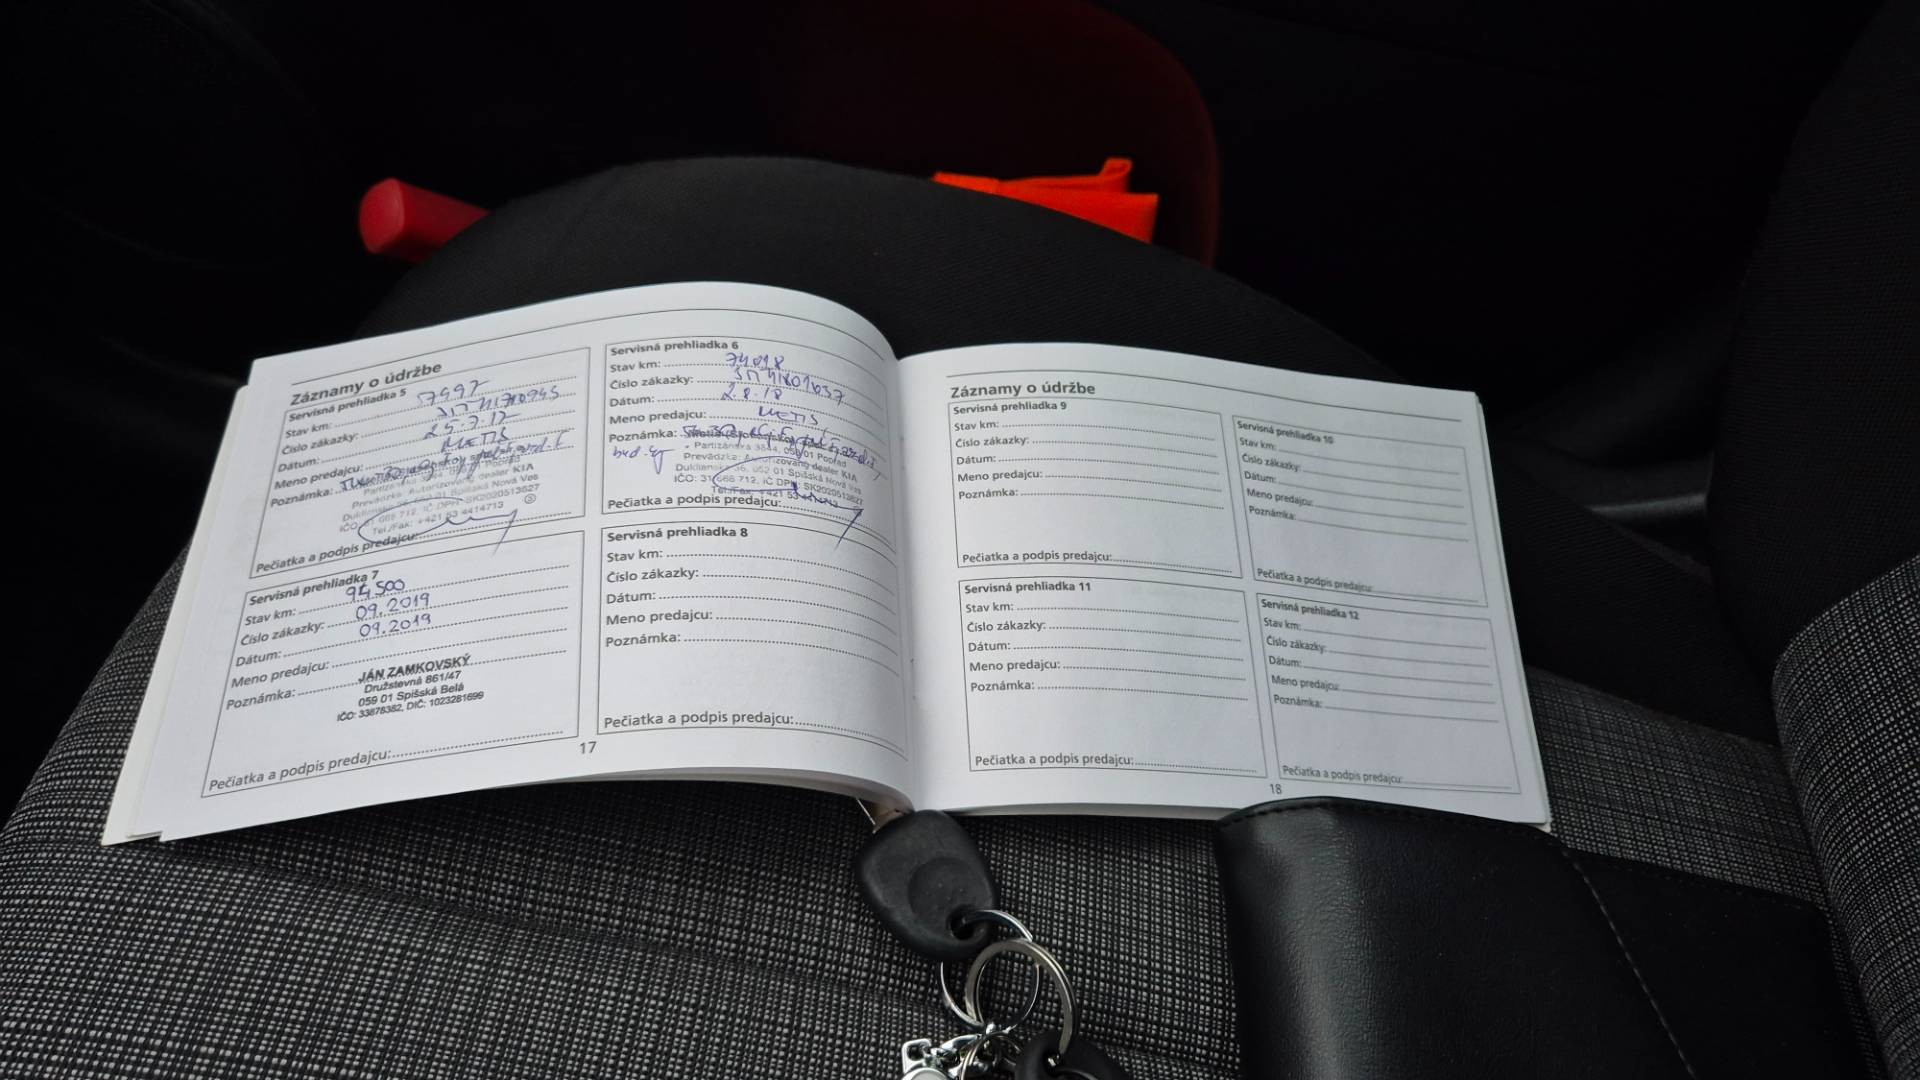 Záznamy o údržbe
Servisná prehliadka 5
Stav km:
Číslo zákazky:
Dátum: 25.7.17
Meno predajcu: METIS
Poznámka:
Partizánska 3844, 058 01 Poprad
Prevádzka: Autorizovaný dealer KIA
Duklianska 36, 052 01 Spišská Nová Ves
IČO: 31 666 712, IČ DPH: SK2020513627
Tel./Fax: +421 53 4414713
Pečiatka a podpis predajcu:
Servisná prehliadka 6
Stav km: 74018
Číslo zákazky:
Dátum: 2.8.18
Meno predajcu: METIS
Poznámka:
Partizánska 3844, 058 01 Poprad
Prevádzka: Autorizovaný dealer KIA
Duklianska 36, 052 01 Spišská Nová Ves
IČO: 31 666 712, IČ DPH: SK2020513627
Tel./Fax: +421 53 4414713
Pečiatka a podpis predajcu:
Servisná prehliadka 7
Stav km: 94 500
Číslo zákazky: 09.2019
Dátum: 09.2019
Meno predajcu:
Poznámka:
JÁN ZAMKOVSKÝ
Družstevná 861/47
059 01 Spišská Belá
IČO: 33878382, DIČ: 1023281699
Pečiatka a podpis predajcu:
Servisná prehliadka 8
Stav km:
Číslo zákazky:
Dátum:
Meno predajcu:
Poznámka:
Pečiatka a podpis predajcu:
17
Záznamy o údržbe
Servisná prehliadka 9
Stav km:
Číslo zákazky:
Dátum:
Meno predajcu:
Poznámka:
Pečiatka a podpis predajcu:
Servisná prehliadka 10
Stav km:
Číslo zákazky:
Dátum:
Meno predajcu:
Poznámka:
Pečiatka a podpis predajcu:
Servisná prehliadka 11
Stav km:
Číslo zákazky:
Dátum:
Meno predajcu:
Poznámka:
Pečiatka a podpis predajcu:
Servisná prehliadka 12
Stav km:
Číslo zákazky:
Dátum:
Meno predajcu:
Poznámka:
Pečiatka a podpis predajcu:
18